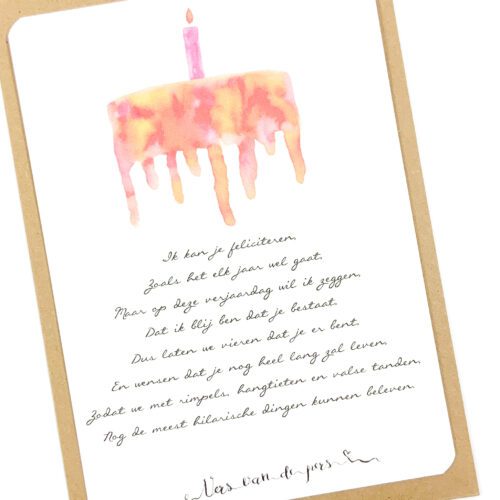 Ik kan je feliciteren,
Zoals het elk jaar wel gaat,
Maar op deze verjaardag wil ik zeggen,
Dat ik blij ben dat je bestaat.
Dus laten we vieren dat je er bent,
En wensen dat je nog heel lang zal leven,
Zodat we met rimpels, hangtieten en valse tanden,
Nog de meest hilarische dingen kunnen beleven.
Vers van de pers